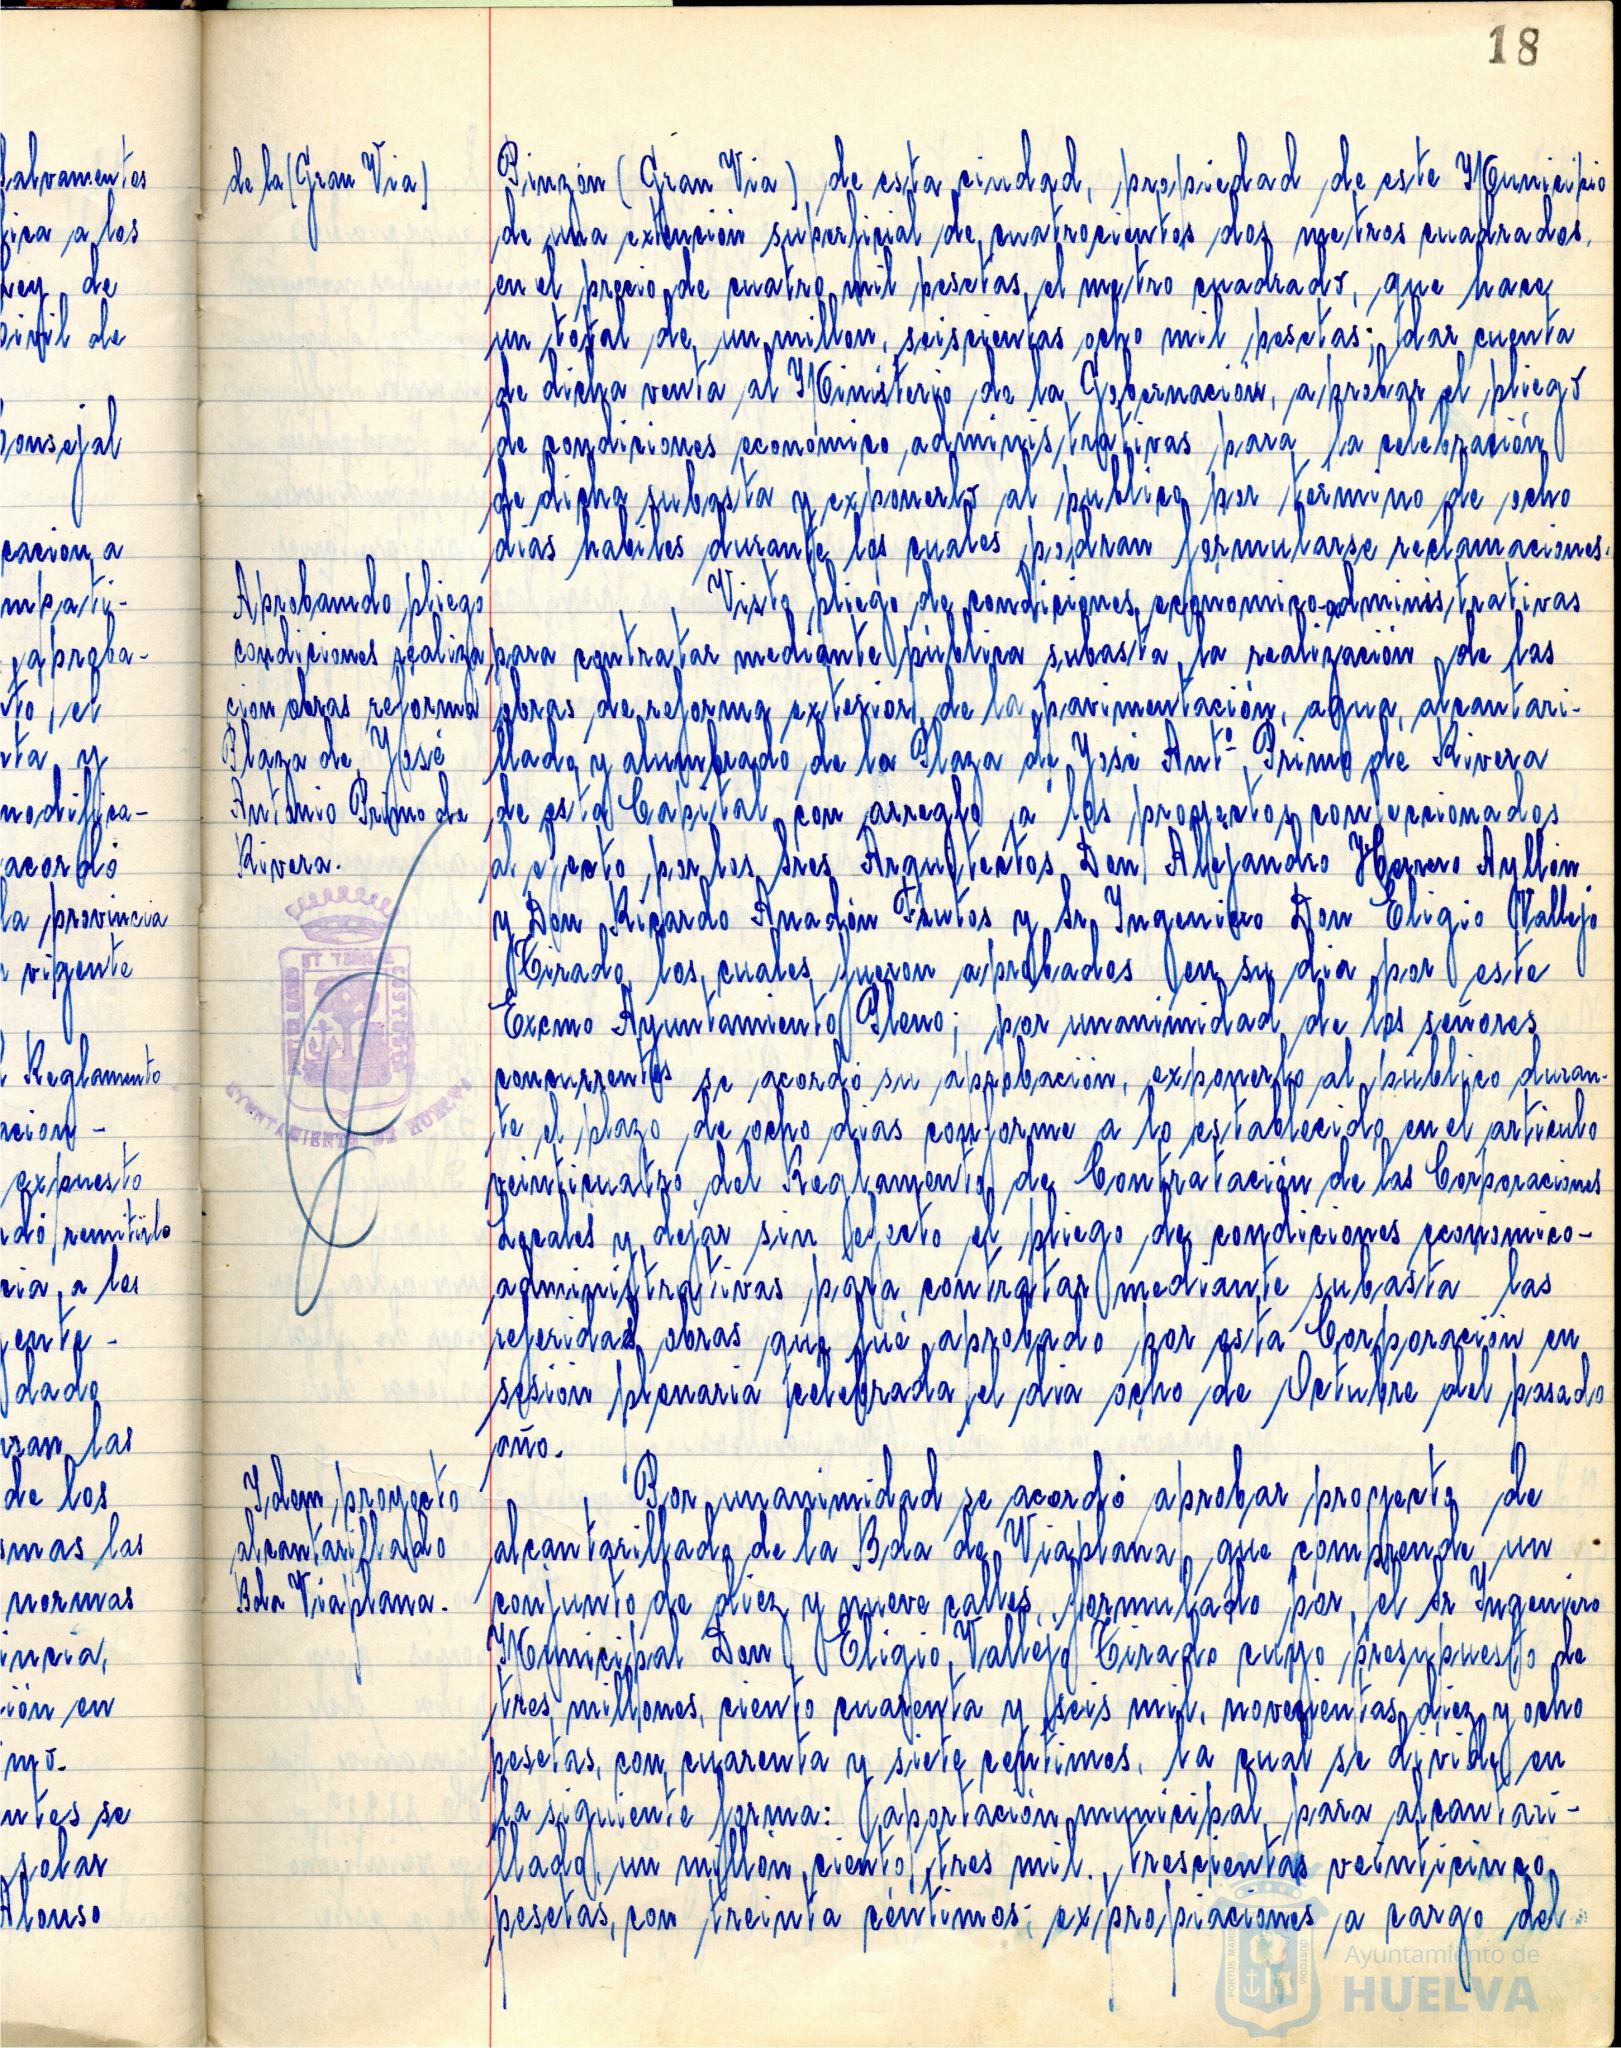 18
salvamentos
fica a los
ley de
civil de
consejal
cacion a
mpati-
aproba-
to, el
ta y
modifica-
acordó
la provincia
vigente
Reglamento
acion -
expuesto
dó remitirlo
cia, a los
ente -
dado
zan las
de los
smas las
normas
incia,
ión en
mo.
ntes se
solar
Alonso
de la (Gran Via)
Pinzón (Gran Via) de esta ciudad, propiedad de este Municipio
de una extención superficial de cuatrocientos dos metros cuadrados,
en el precio de cuatro mil pesetas, el metro cuadrado, que hace
un total de, un millon, seiscientas ocho mil pesetas; dar cuenta
de dicha venta al Ministerio de la Gobernación, aprobar el pliego
de condiciones económico administrativas para la celebración
de dicha subasta y exponerlo al publico por termino de ocho
dias habiles durante los cuales podran formularse reclamaciones.
Aprobando pliego
condiciones realiza
cion obras reforma
Plaza de José
Antonio Primo de
Rivera.
Visto pliego de condiciones economico-administrativas
para contratar mediante pública subasta la realización de las
obras de reforma exterior de la pavimentación, agua, alcantari-
llado y alumbrado de la Plaza de José Antº Primo de Rivera
de esta Capital con arreglo a los proyectos confeccionados
al efecto por los Sres Arquitectos Don Alejandro Herrero Ayllón
y Don Ricardo Anadón Frutos y Sr Ingeniero Don Eligio Vallejo
Tirado, los cuales fueron aprobados en su dia por este
Excmo Ayuntamiento Pleno; por unanimidad de los señores
concurrentes se acordó su aprobación, exponerlo al publico duran-
te el plazo de ocho dias conforme a lo establecido en el articulo
veinticuatro del Reglamento de Contratación de las Corporaciones
Locales y dejar sin efecto el pliego de condiciones economico-
administrativas para contratar mediante subasta las
referidas obras que fué aprobado por esta Corporación en
sesión plenaria celebrada el dia ocho de Octubre del pasado
año.
Idem proyecto
alcantarillado
Bda Viaplana.
Por unanimidad se acordó aprobar proyecto de
alcantarillado de la Bda de Viaplana, que comprende un
conjunto de diez y nueve calles, formulado por el Sr Ingeniero
Municipal Don Eligio Vallejo Tirado cuyo presupuesto de
tres millones, ciento cuarenta y seis mil, novecientas diez y ocho
pesetas, con cuarenta y siete centimos, la cual se divide en
la siguiente forma: aportación municipal para alcantari-
llado, un millón ciento tres mil, trescientas veinticinco
pesetas, con treinta céntimos; expropiaciones a cargo del
AYUNTAMIENTO DE HUELVA
Ayuntamiento de
HUELVA